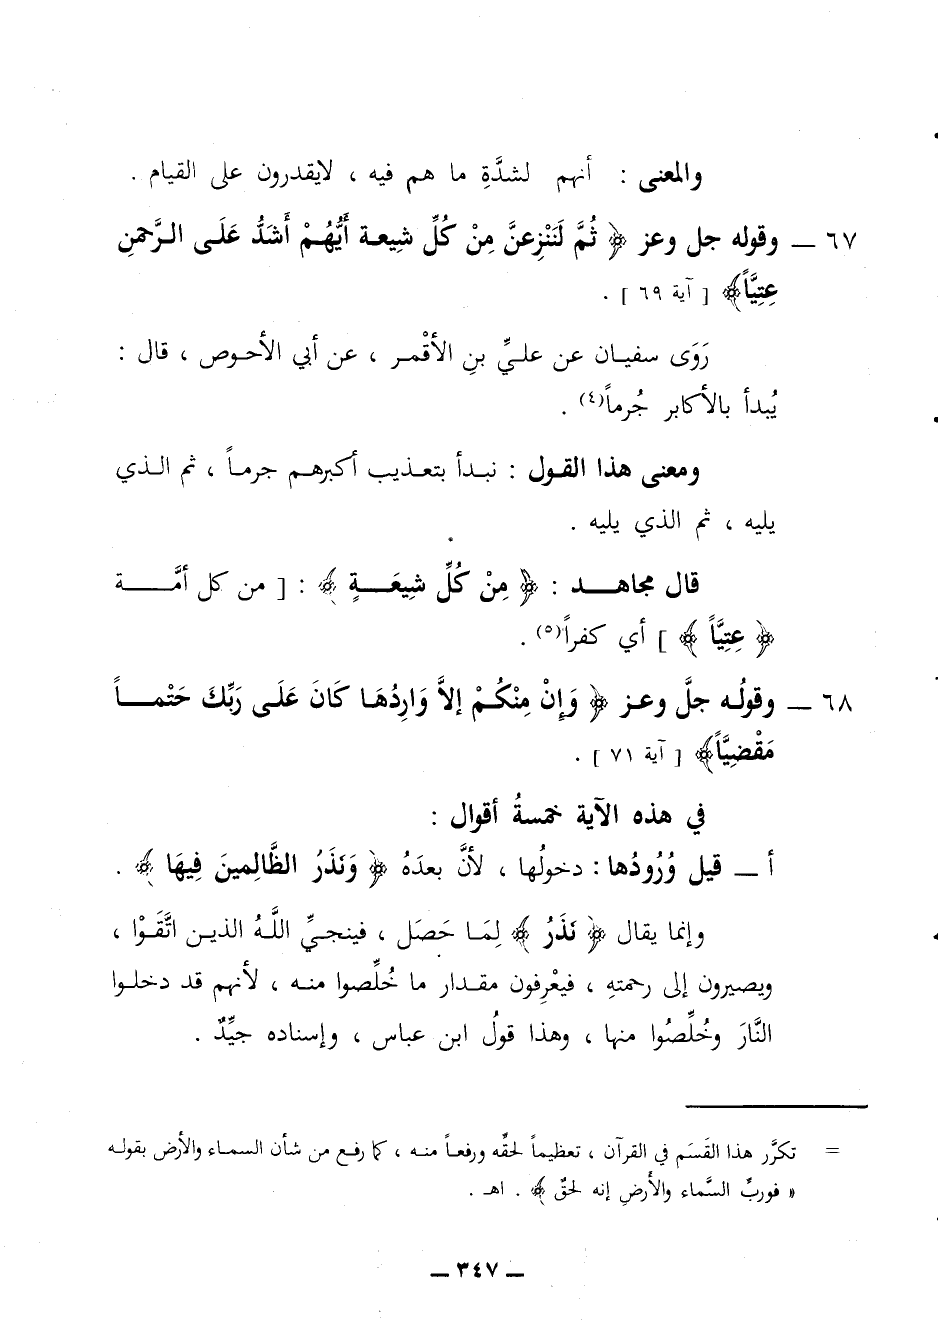 والمعنى : أنهم لشدَّةِ ما هم فيه ، لايقدرون على القيام .
٦٧ ــ وقوله جل وعز ﴿ ثُمَّ لَنَنْزِعنَّ مِنْ كُلِّ شيعة أَيُّهُمْ أَشَدُّ عَلَى الرَّحمنِ
عِتِيَّاً﴾ [ آية ٦٩ ] .
رَوَى سفيان عن عليِّ بنِ الأقْمر ، عن أبي الأحوص ، قال :
يُبدأ بالأكابر جُرماً(٤) .
ومعنى هذا القول : نبدأ بتعذيب أكبرهم جرماً ، ثم الذي
يليه ، ثم الذي يليه .
قال مجاهد : ﴿ مِنْ كُلِّ شِيعَةٍ ﴾ : [ من كل أمَّة
﴿ عِتِيَّاً ﴾ ] أي كفراً(٥) .
٦٨ ــ وقولُه جلَّ وعز ﴿ وَإِنْ مِنْكُمْ إلاَّ وَارِدُهَا كَانَ عَلَى رَبِّكَ حَتْماً
مَقْضِيَّاً﴾ [ آية ٧١ ] .
في هذه الآية خمسةُ أقوال :
أ ــ قيل وُرُودُها : دخولُها ، لأنَّ بعدَهُ ﴿ وَنَذَرُ الظَّالِمينَ فِيهَا ﴾ .
وإنما يقال ﴿ نَذَرُ ﴾ لِمَا حَصَل ، فينجيِّ اللَّهُ الذين اتَّقَوْا ،
ويصيرون إلى رحمتهِ ، فيعْرِفون مقدار ما خُلِّصوا منه ، لأنهم قد دخلوا
النَّارَ وخُلِّصُوا منها ، وهذا قولُ ابن عباس ، وإسناده جيِّدٌ .
= تكرَّر هذا القَسَم في القرآن ، تعظيماً لحقِّه ورفعاً منه ، كما رفع من شأن السماء والأرض بقوله
« فوربِّ السَّماء والأرضِ إنه لحقٌ ﴾ . اهـ .
ــ ٣٤٧ ــ